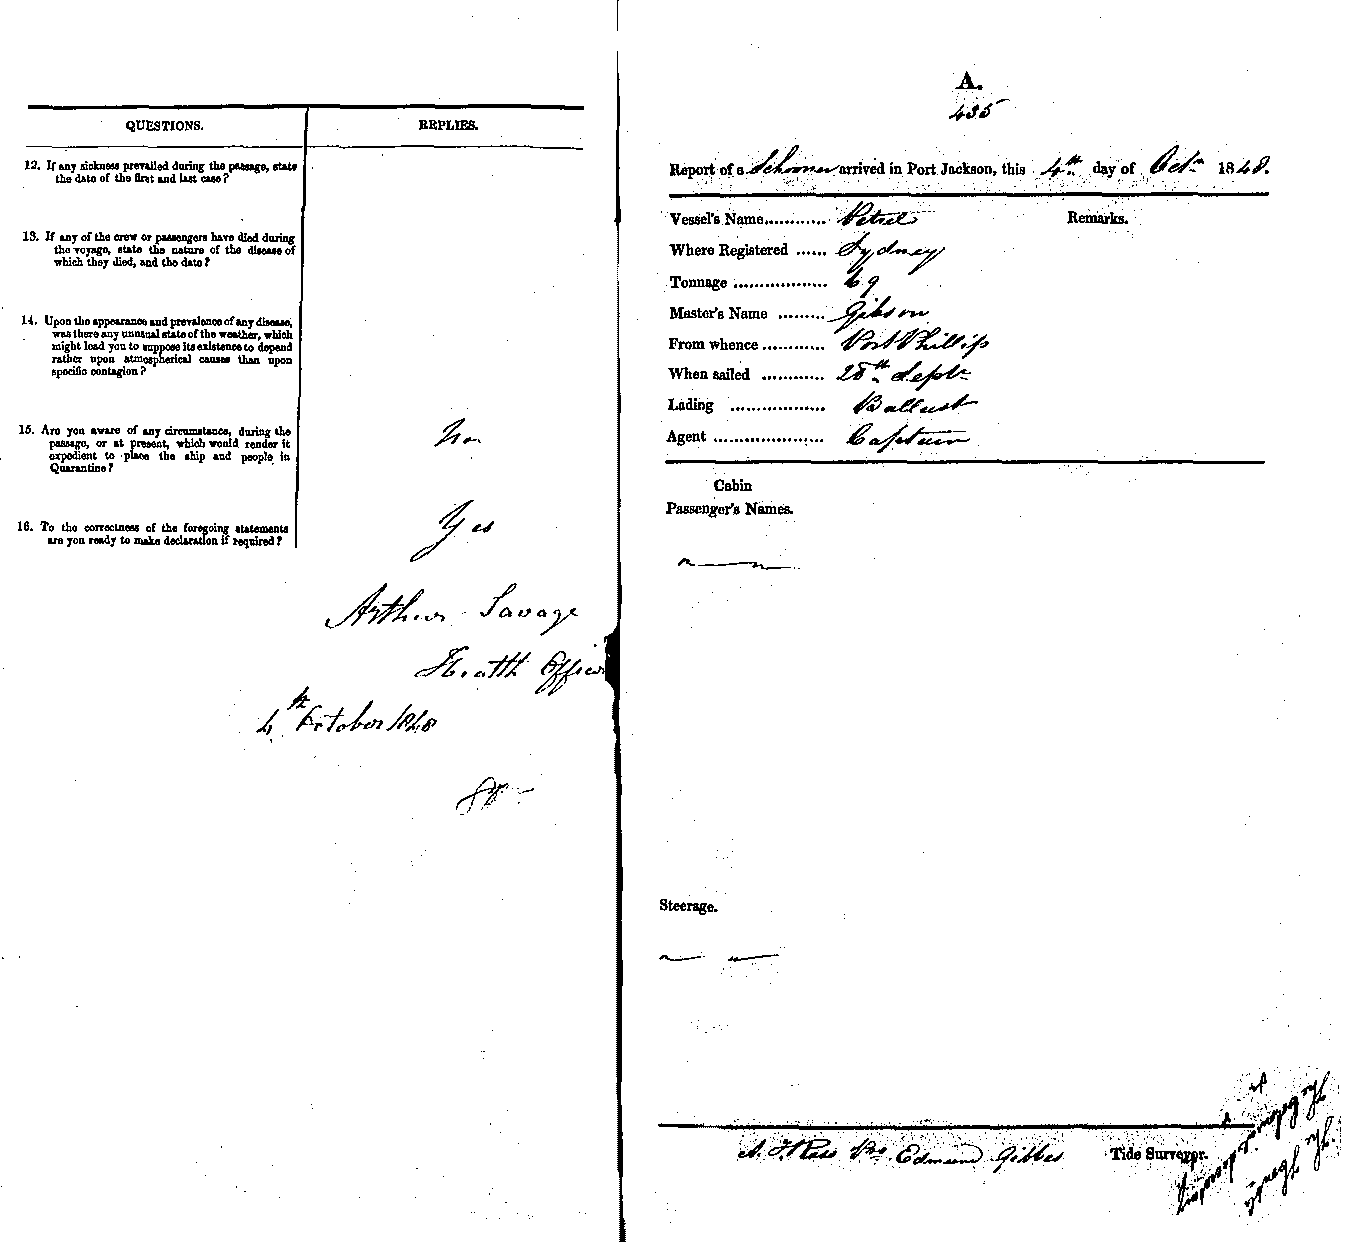 QUESTIONS. REPLIES.
12. If any sickness prevailed during the passage, state
the date of the first and last case?
13. If any of the crew or passengers have died during
the voyage, state the nature of the disease of
which they died, and the date?
14. Upon the appearance and prevalence of any disease,
was there any unusual state of the weather, which
might lead you to suppose its existence to depend
rather upon atmospherical causes than upon
specific contagion?
15. Are you aware of any circumstance, during the
passage, or at present, which would render it
expedient to place the ship and people in
Quarantine?
No
16. To the correctness of the foregoing statements
are you ready to make declaration if required?
Yes
Arthur Savage
Health Officer
4th October 1848
A.
435
Report of a Schooner arrived in Port Jackson, this 4th day of Octr 1848.
Vessel's Name............ Petrel
Remarks.
Where Registered ...... Sydney
Tonnage .................. 69
Master's Name ......... Gibson
From whence ............ Port Phillip
When sailed ............ 28th Septr
Lading .................. Ballast
Agent ..................... Captain
Cabin
Passenger's Names.
Steerage.
Edmund Gibbes
Tide Surveyor.